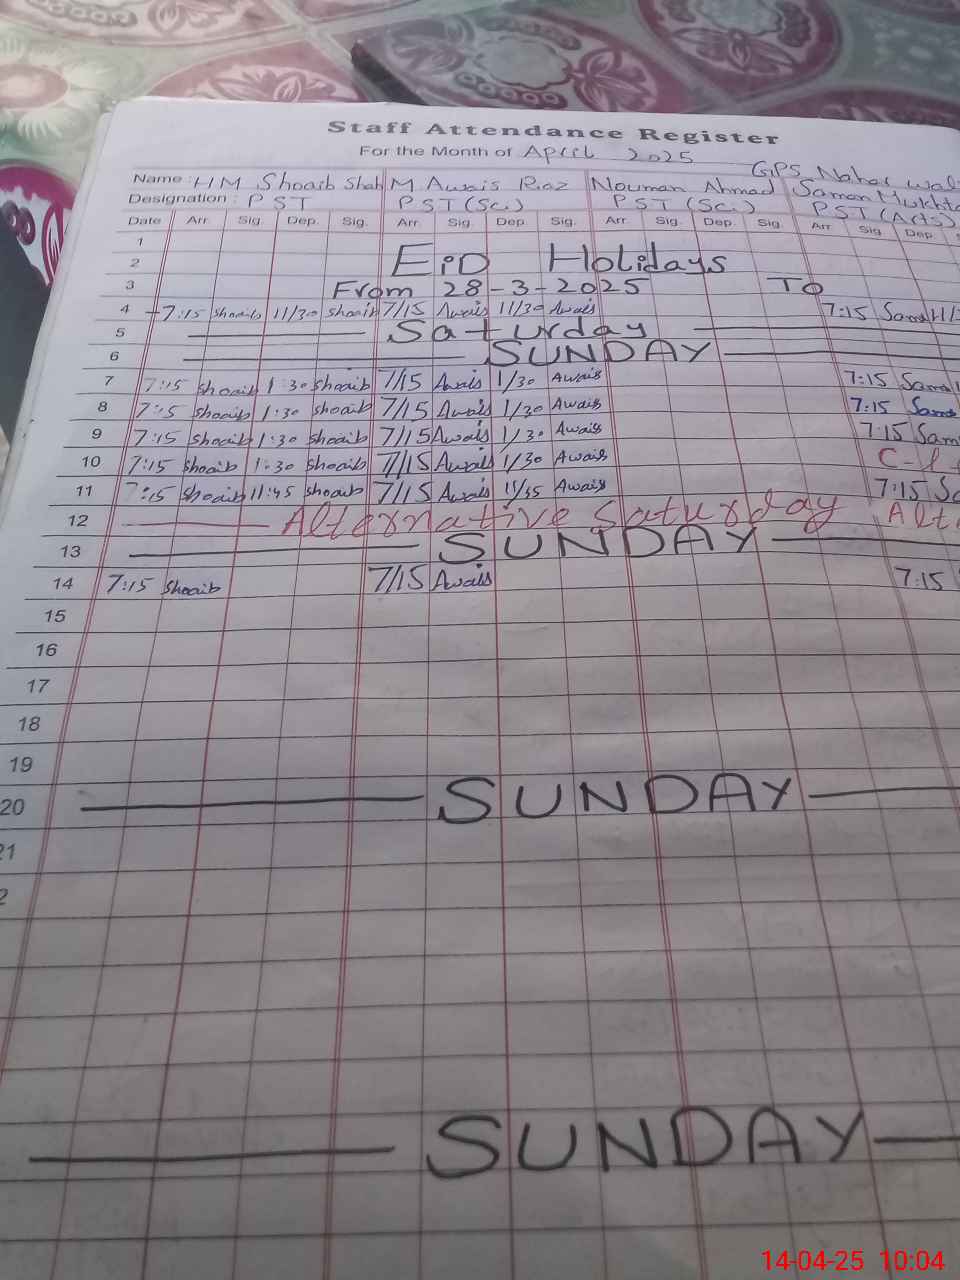 Staff Attendance Register
For the Month of April 2025
GPS Nahar
Name : HM Shoaib Shah M. Awais Riaz Nouman Ahmad Saman Mukhta
Designation : PST PST (Sci) PST (Sci) PST (Arts)
Date Arr. Sig. Dep. Sig. Arr. Sig. Dep. Sig. Arr. Sig. Dep. Sig. Arr Sig Dep
1
2 EiD Holidays
3 From 28-3-2025 To
4 7:15 shoaib 11/30 shoaib 7/15 Awais 11/30 Awais 7:15
5 Saturday
6 SUNDAY
7 7:15 shoaib 1:30 shoaib 7/15 Awais 1/30 Awais 7:15
8 7:15 shoaib 1:30 shoaib 7/15 Awais 1/30 Awais 7:15
9 7:15 shoaib 1:30 shoaib 7/15 Awais 1/30 Awais 7:15 Sam
10 7:15 shoaib 1:30 shoaib 7/15 Awais 1/30 Awais
11 7:15 shoaib 11:45 shoaib 7/15 Awais Awais 7:15
12 Alternative Saturday Alt
13 SUNDAY
14 7:15 shoaib 7/15 Awais 7:15
15
16
17
18
19
20 SUNDAY
21
2
SUNDAY
14-04-25 10:04